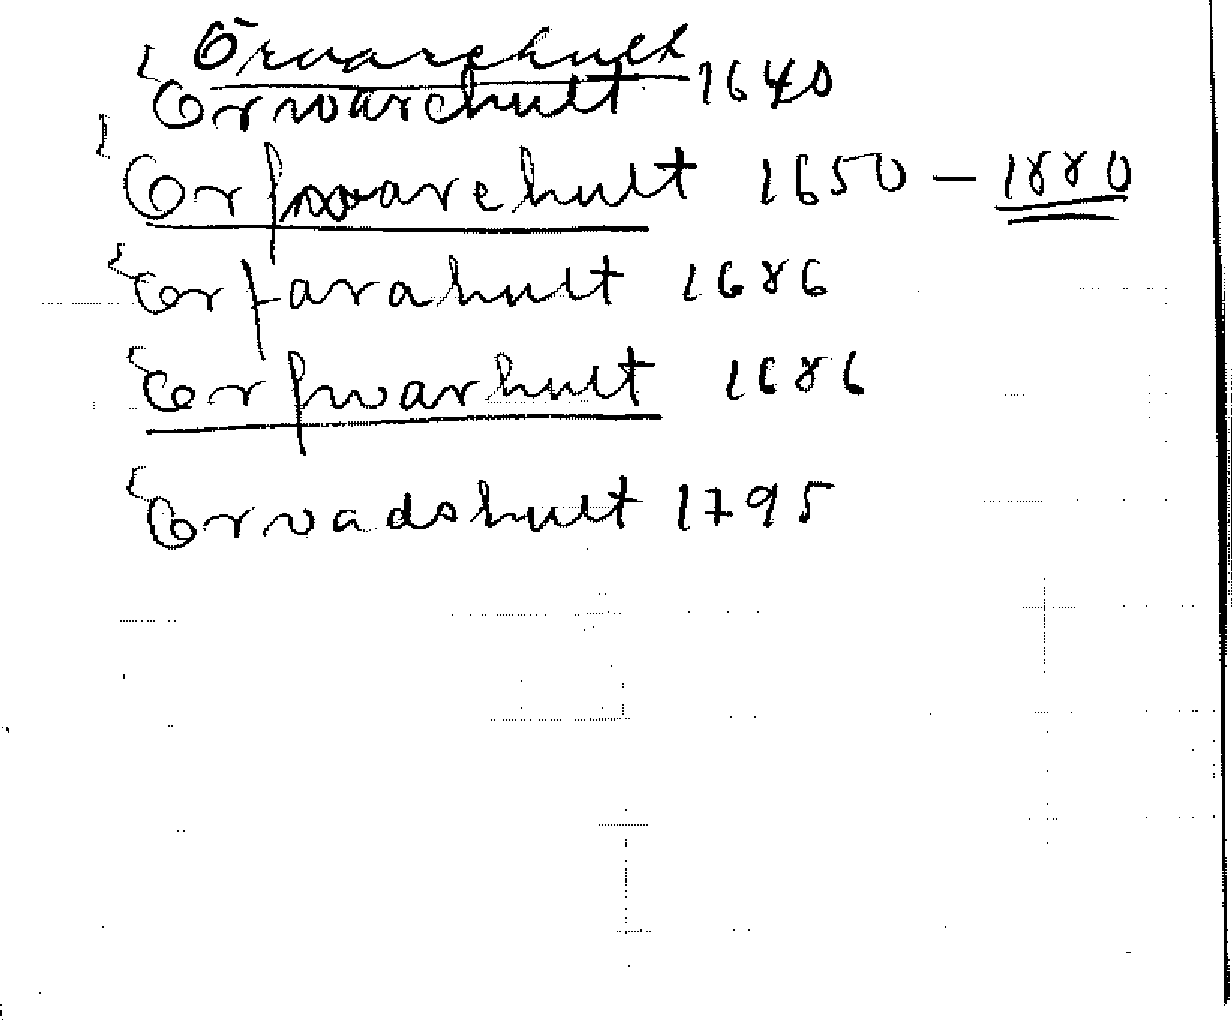 Örwarehult
Örwarehult 1640
Örfwarehult 1650 - 1880
Örfarahult 1686
Örfwarhult 1686
Örvadshult 1795